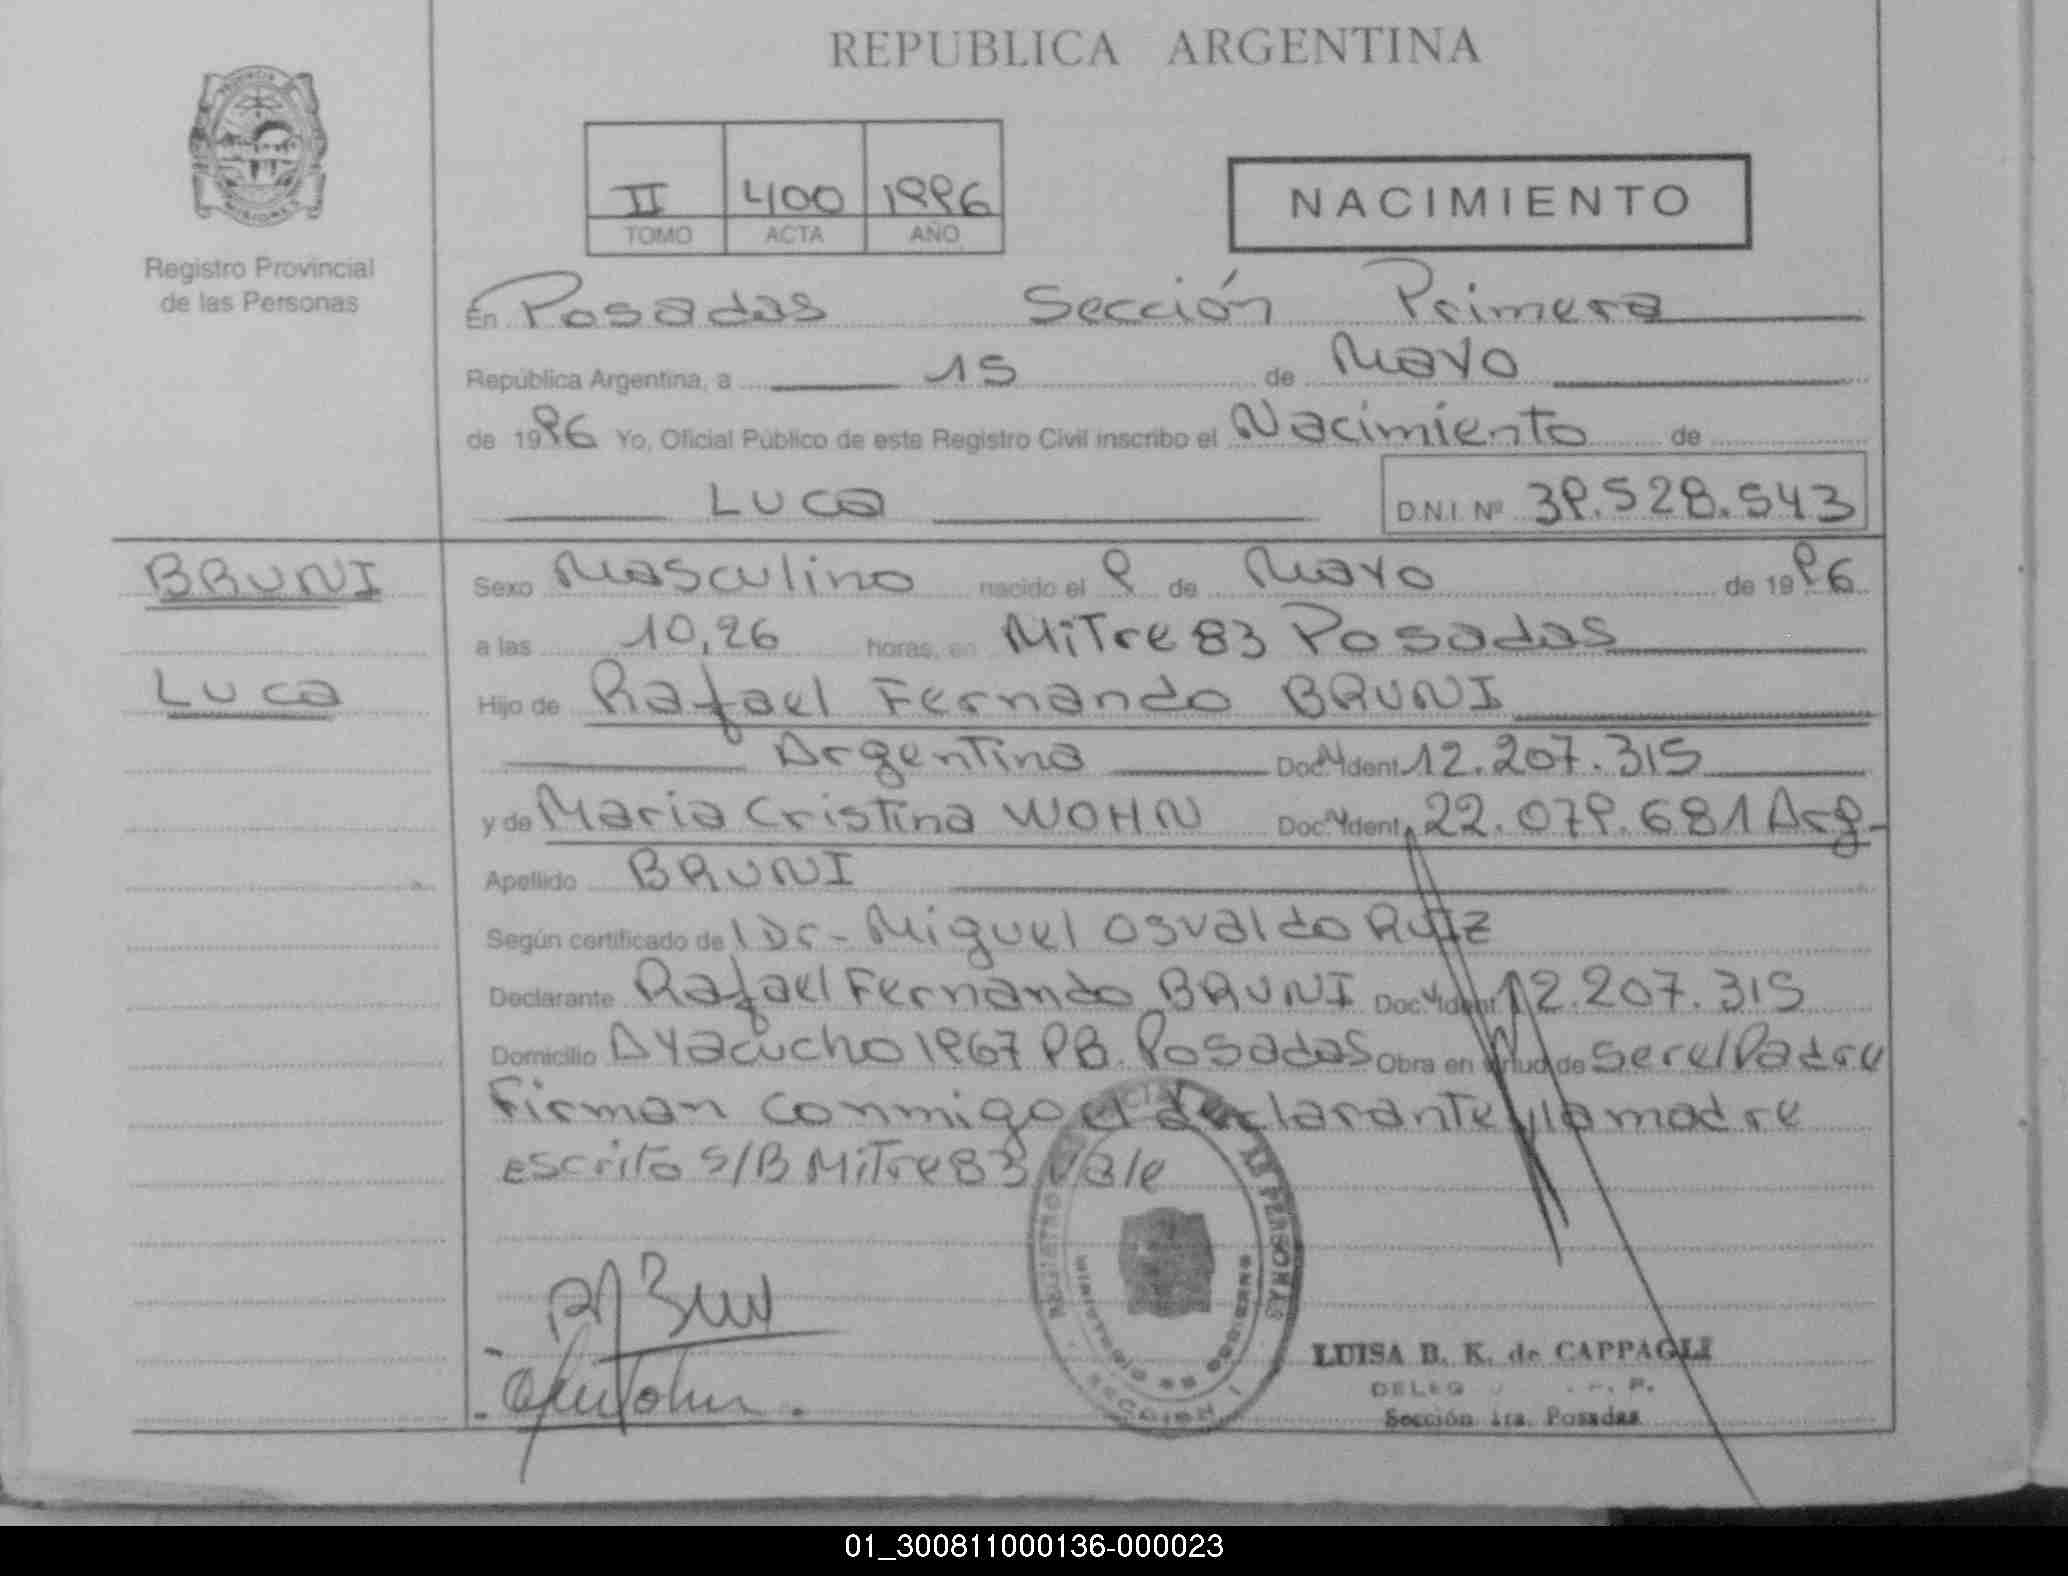 REPUBLICA ARGENTINA
PROVINCIA
MISIONES
Registro Provincial
de las Personas
II 400 1996
TOMO ACTA AÑO
NACIMIENTO
En Posadas Sección Primera
República Argentina, a 15 de Mayo
de 1996 Yo, Oficial Público de este Registro Civil inscribo el Nacimiento de
Luca D.N.I. Nº 39.528.543
BRUNI
Luca
Sexo Masculino nacido el 9 de Mayo de 1996
a las 10,26 horas, en Mitre 83 Posadas
Hijo de Rafael Fernando BRUNI
Argentina Doc. Ident. 12.207.315
y de Maria Cristina WOHN Doc. Ident. 22.079.681 Arg-
Apellido BRUNI
Según certificado del Dr- Miguel Osvaldo Ruiz
Declarante Rafael Fernando BRUNI Doc. Ident. 12.207.315
Domicilio Ayacucho 1967 PB. Posadas Obra en virtud de ser el Padre
Firman conmigo el declarante y la madre
escrito s/B Mitre 83 Vale
LUISA B. K. de CAPPAGLI
Sección 1ra. Posadas
01_300811000136-000023